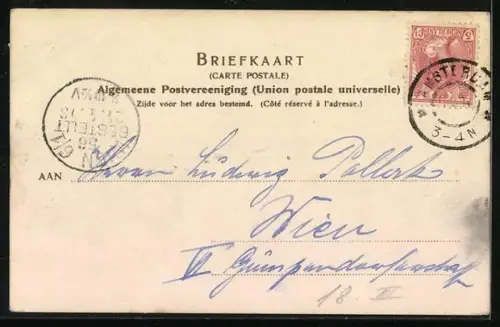 BRIEFKAART
(CARTE POSTALE)
Algemeene Postvereeniging (Union postale universelle)
Zijde voor het adres bestemd. (Côté réservé à l'adresse.)
AMSTERDAM
3-4N
WIEN 6/1
56
BESTELLT
AAN Herrn Ludwig Pollak
Wien
VI Gumpendorferstraße
18. III